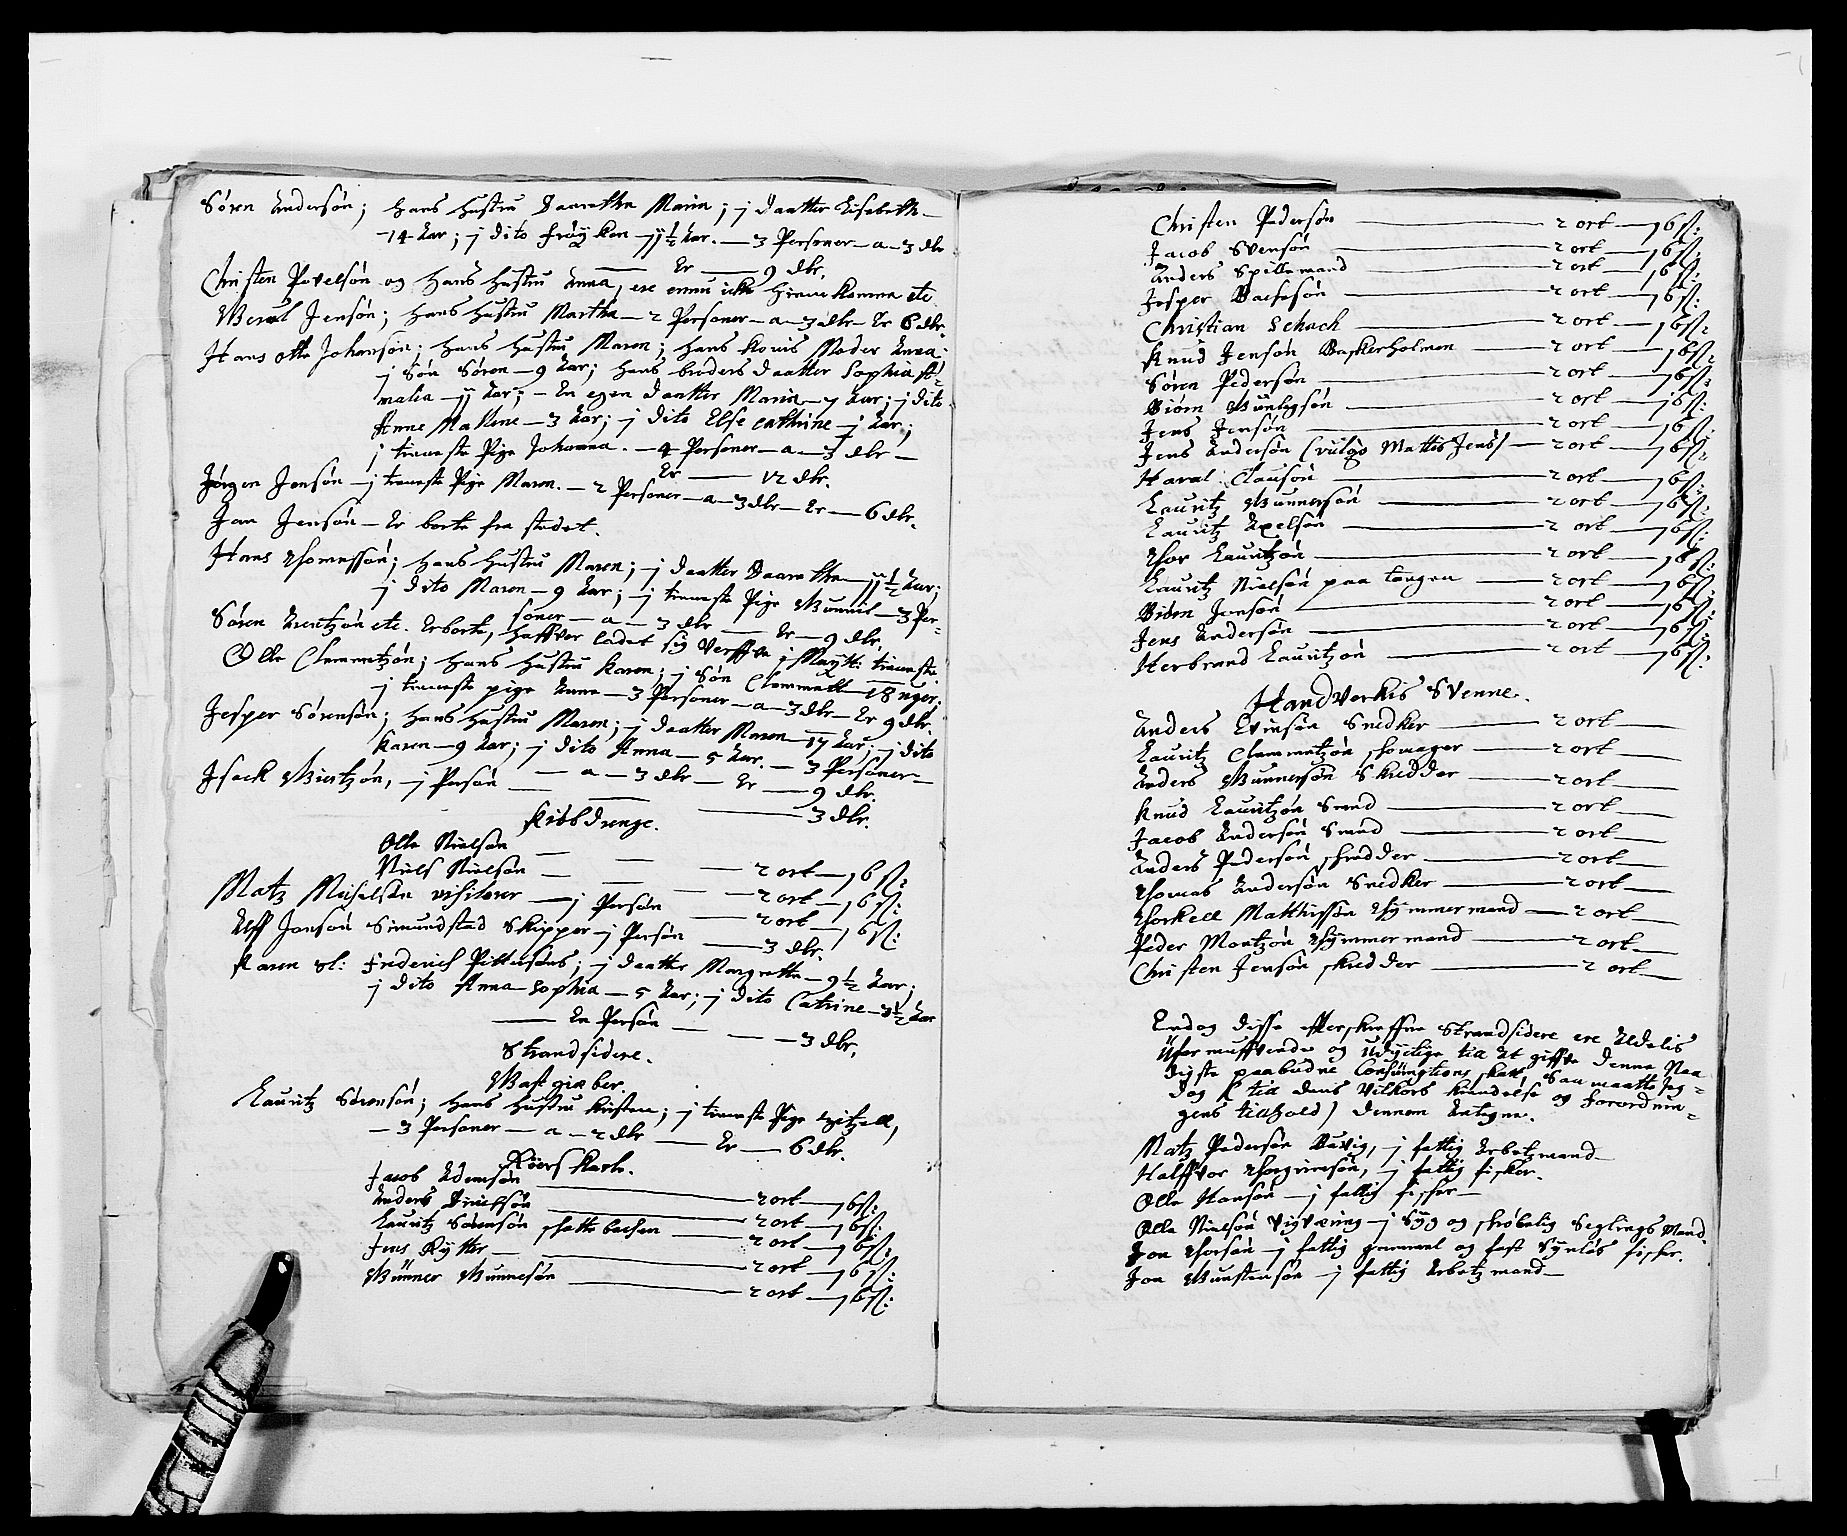 Søren Andersøn; Hans Hustru Daarethe Maria; j daatter Lisebeth
14 Aar; j dito frøyken 11½ Aar. 3 Personer a 3 dlr
Er 9 dlr.
Christen Povelsøn og Hans Hustru Anna, ere ennu icke komne etc
Jensøn; Hans Hustru Martha 2 Personer a 3 dlr Er 6 dlr.
Hans otte Johansøn; Hans Hustru Maren; Hans Moder Anna
j Søn Søren 9 Aar; Hans broders daatter Sophia A-
malia jj Aar; En egen daatter Maria 7 Aar; j dito
Anne Malene 3 Aar; j dito Else Cathrine j Aar;
j tieneste Pige Johanna. 4 Personer a 3 dlr
Er 12 dlr.
Jørgen Jensøn j tieneste Pige Maren. 2 Personer a 3 dlr Er 6 dlr.
Jan Jensøn Er borte fra stedet.
Hans Thomessøn; Hans Hustru Maren; j daatter Daarethe jj½ Aar;
j dito Maren 9 Aar; j tieneste Pige Gunnil 3 Per-
soner a 3 dlr Er 9 dlr.
Søren etc. Er borte, haffver ladet sig verffve j Maytt: tieneste
Olle Clemmetzøn; Hans Hustru Karen; j Søn Clemmet 18 uger;
j tieneste pige Anna 3 Personer a 3 dlr Er 9 dlr.
Jesper Sørensøn; Hans Hustru Maren; j daatter Maren 17 Aar; j dito
Karen 9 Aar; j dito Anna 5 Aar. 3 Personer
a 3 dlr Er 9 dlr.
Isack Giertzøn, j Persøn 3 dlr.
Skibbdrenge.
Olle Nielsøn 2 ort 16 ß:
Niels Nielsøn 2 ort 16 ß:
Matz Michelsøn visiterer j Persøn 2 ort 16 ß:
Ulff Jonsøn Simundstad Skipper j Persøn 3 dlr.
Karen Sl: Friderich Pittersøns; j daatter Margrethe 9½ Aar;
j dito Anna Sophia 5 Aar; j dito Catrine 3½ Aar
En Persøn 3 dlr.
Strandsidere.
Gast giæber.
Lauritz Sørensøn; Hans Hustru Kirsten; j tieneste Pige Zitzell,
3 Personer a 2 dlr Er 6 dlr.
Røers karle.
Jacob Ademsøn 2 ort 16 ß:
Anders Dirichsøn 2 ort 16 ß:
Lauritz Sørensøn skattebachen 2 ort 16 ß:
Jens Rytter 2 ort 16 ß:
Gunner Gunnesøn 2 ort 16 ß:
Christen Pedersøn 2 ort 16 ß:
Jacob Svensøn 2 ort 16 ß:
Anders Spillemand 2 ort 16 ß:
Jesper 2 ort 16 ß:
Christian Schach 2 ort 16 ß:
Knud Jensøn Baskerholmen 2 ort 16 ß:
Søren Pedersøn 2 ort 16 ß:
Biørn Gunlegsøn 2 ort 16 ß:
Jens Jensøn 2 ort 16 ß:
Jens Andersøn (vulgo Mattis Jens) 2 ort 16 ß:
Haral Clausøn 2 ort 16 ß:
Lauritz Gunnersøn 2 ort 16 ß:
Lauritz Axelsøn 2 ort 16 ß:
Thor Lauritzøn 2 ort 16 ß:
Lauritz Nielsøn paa tangen 2 ort 16 ß:
Biøen Jensøn 2 ort 16 ß:
Jens Andersøn 2 ort 16 ß:
Herbrand Lauritzøn 2 ort 16 ß:
Handverkis Svenne.
Anders Evinsøn Snedker 2 ort
Lauritz Clemmetzøn skomager 2 ort
Anders Gunnersøn Skredder 2 ort
Knud Lauritzøn Smed 2 ort
Jacob Andersøn Smed 2 ort
Anders Pedersøn skredder 2 ort
Thomas Andersøn Snedker 2 ort
Thorkell Mathissøn Tymmermand 2 ort
Peder Montzøn Tymmermand 2 ort
Christen Jensøn skredder 2 ort
Endog disse effterskreffne Strandsidere ere Aldelis
Uformuffvende og Udyctige till at giffve denne Naa-
digste paabudne Consumptions skatt, Saa maatte jeg
dog (till deris Vilkors kiendelse og forordnin-
gens tillhold) dennem Antegne.
Matz Pedersøn Buvig, j fattig Arbetzmand
Halffvor Thorgrimsøn, j fattig fisker.
Olle Hansøn j fattig fisker
Olle Nielsøn Vigværing j Syg og skrøbelig Seglings Mand.
Jon Thorsøn j fattig gammel og fast Synløs fisker.
Jon Gunstensøn j fattig Arbetzmand